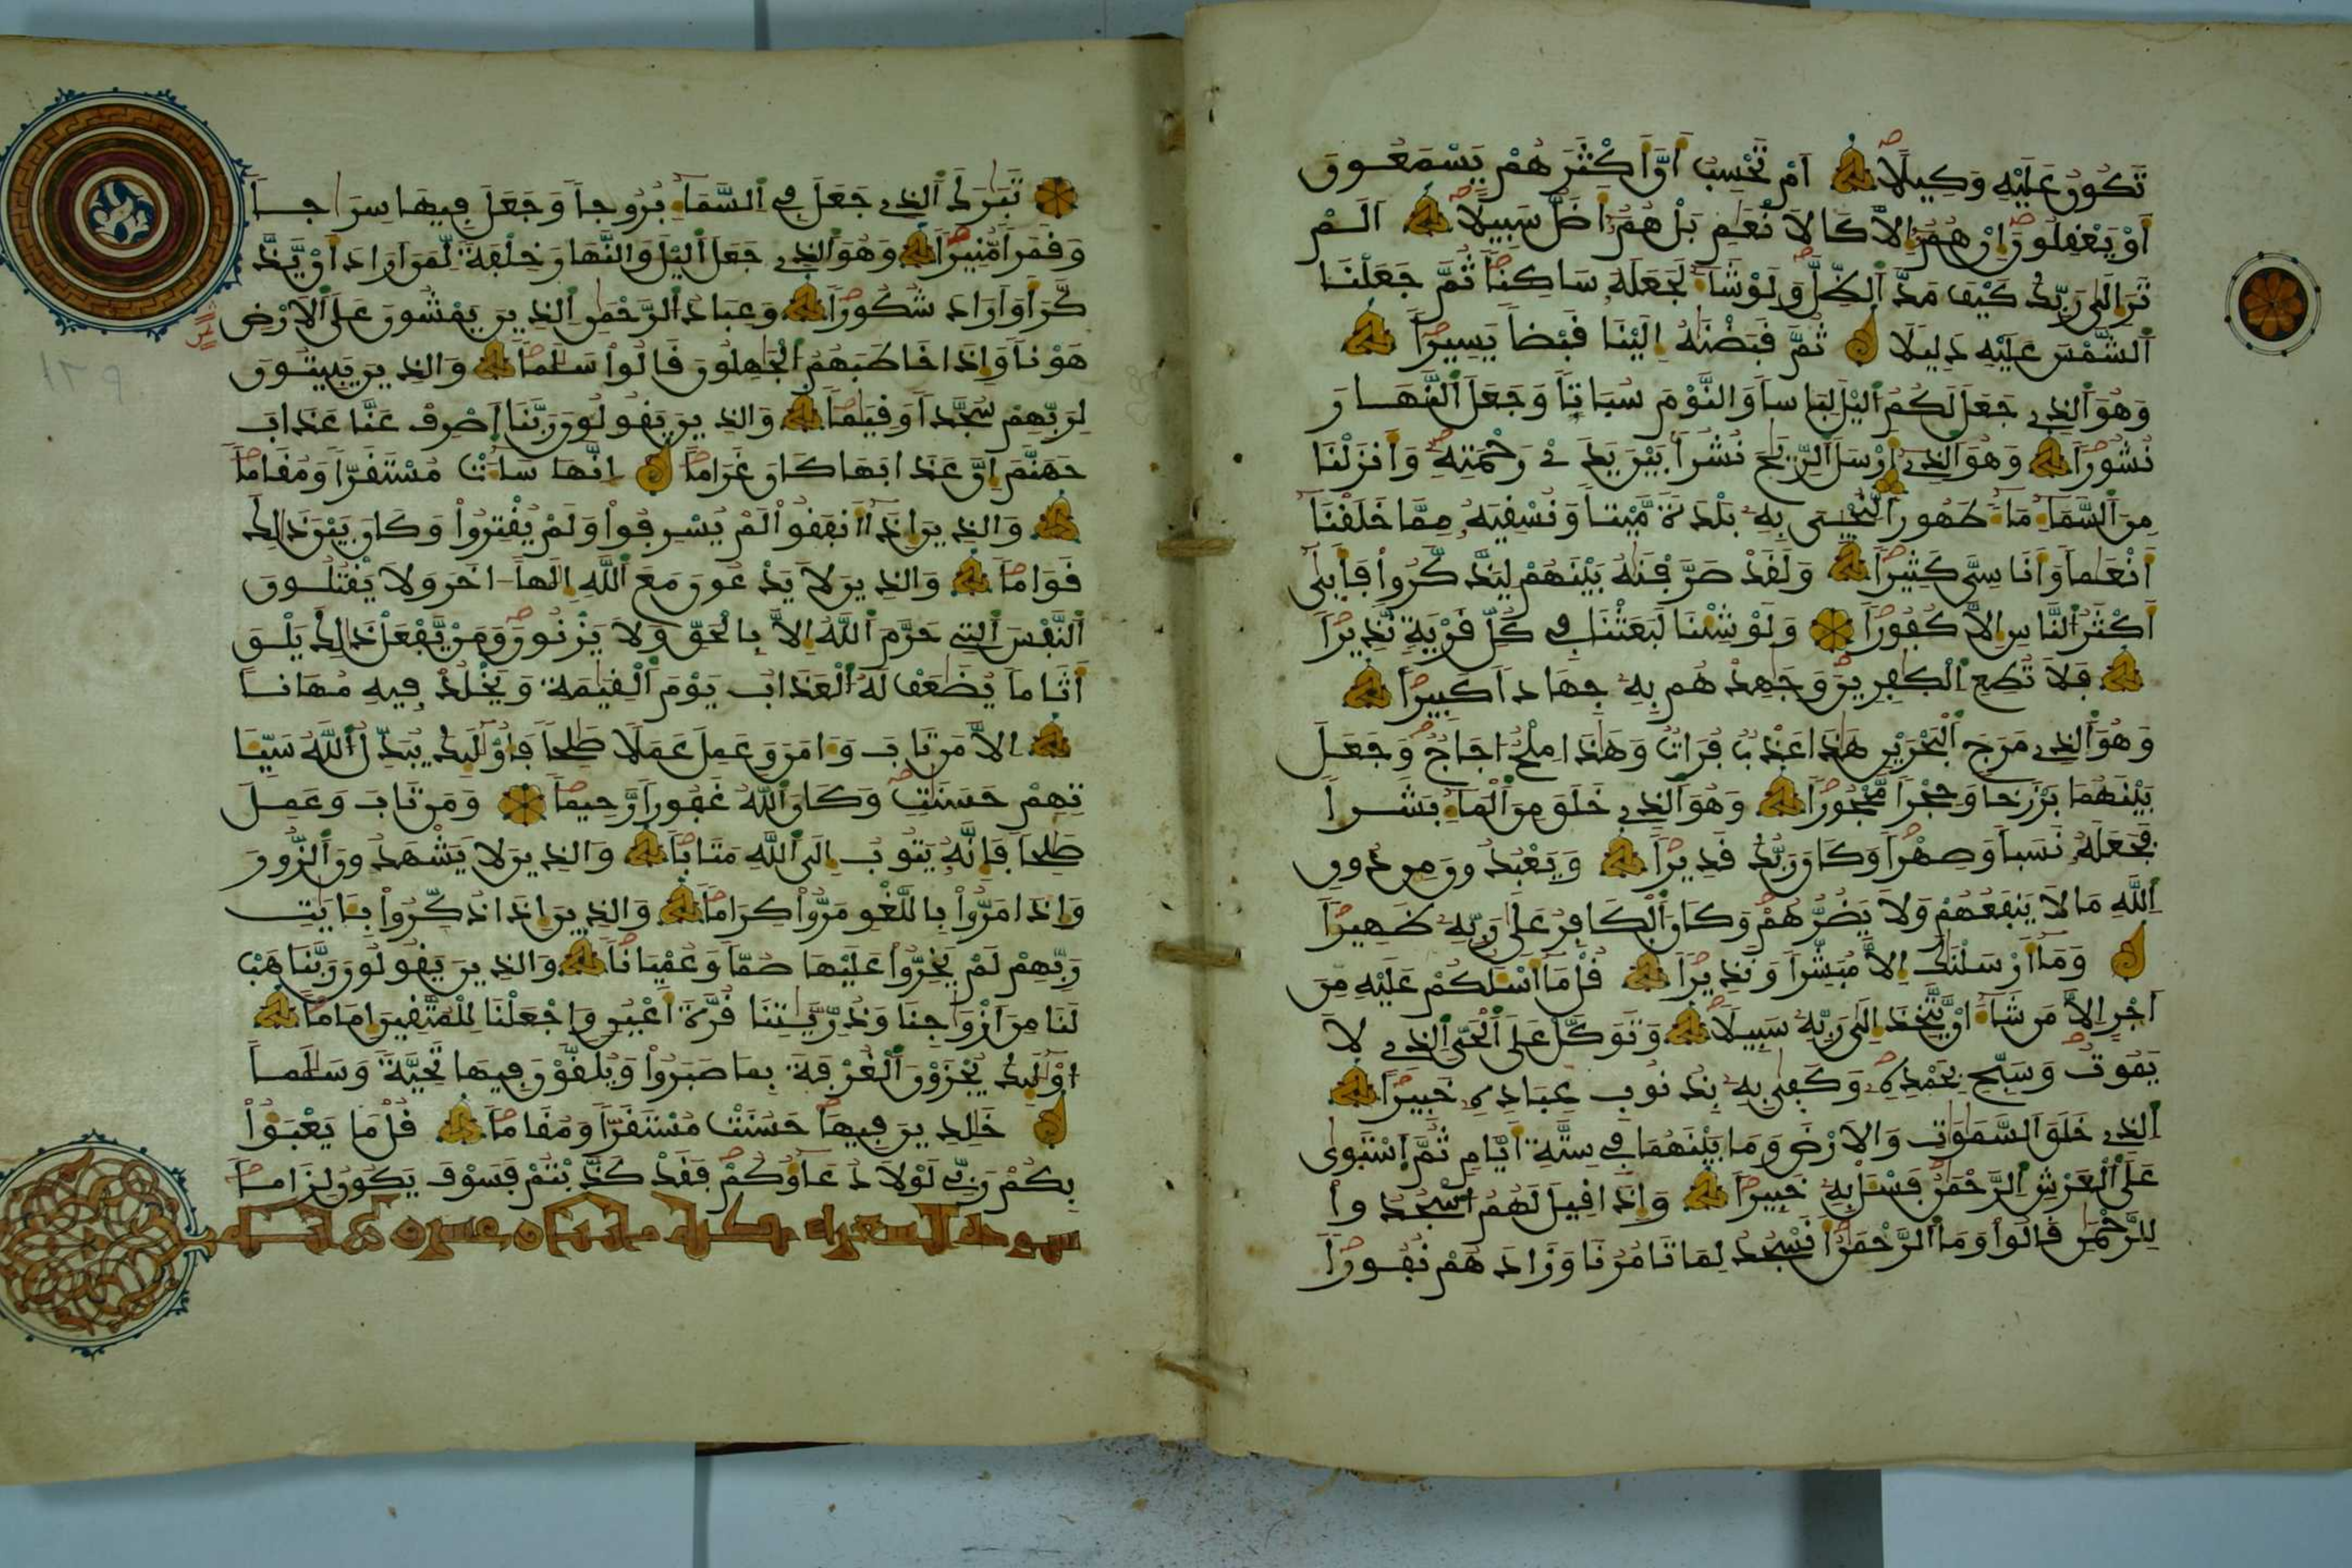 تَكُونُ عَلَيْهِ وَكِيلًا أَمْ تَحْسِبُ أَنَّ أَكْثَرَهُمْ يَسْمَعُونَ
أَوْ يَعْقِلُونَ إِنْ هُمُ إِلَّا كَالَانْعَٰمِ بَلْ هُمُ أَضَلُّ سَبِيلًا أَلَمْ
تَرَ إِلَىٰ رَبِّكَ كَيْفَ مَدَّ ٱلظِّلَّ وَلَوْ شَآءَ لَجَعَلَهُ سَاكِنًا ثُمَّ جَعَلْنَا
ٱلشَّمْسَ عَلَيْهِ دَلِيلًا ثُمَّ قَبَضْنَٰهُ إِلَيْنَا قَبْضًا يَسِيرًا
وَهُوَ ٱلذِے جَعَلَ لَكُمُ ٱليْلَ لِبَاسًا وَالنَّوْمَ سُبَاتًا وَجَعَلَ ٱلنَّهَارَ
نُشُورًا وَهُوَ ٱلذِے أَرْسَلَ ٱلرِّيَٰحَ نُشُرًا بَيْنَ يَدَےْ رَحْمَتِهِ وَأَنزَلْنَا
مِنَ ٱلسَّمَآءِ مَآءً طَهُورًا لِّنُحْيِيَ بِهِ بَلْدَةً مَّيْتًا وَنُسْقِيَهُ مِمَّا خَلَقْنَا
أَنْعَٰمًا وَأَنَاسِيَّ كَثِيرًا وَلَقَدْ صَرَّفْنَٰهُ بَيْنَهُمْ لِيَذَّكَّرُوا۟ فَأَبَىٰ
أَكْثَرُ ٱلنَّاسِ إِلَّا كُفُورًا وَلَوْ شِئْنَا لَبَعَثْنَا فِے كُلِّ قَرْيَةٍ نَّذِيرًا
فَلَا تُطِعِ ٱلْكَٰفِرِينَ وَجَٰهِدْهُم بِهِ جِهَادًا كَبِيرًا
وَهُوَ ٱلذِے مَرَجَ ٱلْبَحْرَيْنِ هَٰذَا عَذْبٌ فُرَاتٌ وَهَٰذَا مِلْحٌ أُجَاجٌ وَجَعَلَ
بَيْنَهُمَا بَرْزَخًا وَحِجْرًا مَّحْجُورًا وَهُوَ ٱلذِے خَلَقَ مِنَ ٱلْمَآءِ بَشَرًا
فَجَعَلَهُ نَسَبًا وَصِهْرًا وَكَانَ رَبُّكَ قَدِيرًا وَيَعْبُدُونَ مِن دُونِ
ٱللَّهِ مَا لَا يَنفَعُهُمْ وَلَا يَضُرُّهُمْ وَكَانَ ٱلْكَافِرُ عَلَىٰ رَبِّهِ ظَهِيرًا
وَمَآ أَرْسَلْنَٰكَ إِلَّا مُبَشِّرًا وَنَذِيرًا قُلْ مَآ أَسْـَٔلُكُمْ عَلَيْهِ مِنَ
أَجْرٍ إِلَّا مَن شَآءَ أَنْ يَّتَّخِذَ إِلَىٰ رَبِّهِ سَبِيلًا وَتَوَكَّلْ عَلَى ٱلْحَيِّ ٱلذِے لَا
يَمُوتُ وَسَبِّحْ بِحَمْدِهِ وَكَفَىٰ بِهِ بِذُنُوبِ عِبَادِهِ خَبِيرًا
ٱلذِے خَلَقَ ٱلسَّمَٰوَٰتِ وَالَارْضَ وَمَا بَيْنَهُمَا فِے سِتَّةِ أَيَّامٍ ثُمَّ ٱسْتَوَىٰ
عَلَى ٱلْعَرْشِ ٱلرَّحْمَٰنُ فَسْـَٔلْ بِهِ خَبِيرًا وَإِذَا قِيلَ لَهُمُ ٱسْجُدُوا۟
لِلرَّحْمَٰنِ قَالُوا۟ وَمَا ٱلرَّحْمَٰنُ أَنَسْجُدُ لِمَا تَامُرُنَا وَزَادَهُمْ نُفُورًا
تَبَٰرَكَ ٱلذِے جَعَلَ فِے ٱلسَّمَآءِ بُرُوجًا وَجَعَلَ فِيهَا سِرَٰجًا
وَقَمَرًا مُّنِيرًا وَهُوَ ٱلذِے جَعَلَ ٱليْلَ وَالنَّهَارَ خِلْفَةً لِّمَنَ أَرَادَ أَنْ يَّذَّ
كَّرَ أَوَ أَرَادَ شُكُورًا وَعِبَادُ ٱلرَّحْمَٰنِ ٱلذِينَ يَمْشُونَ عَلَى ٱلَارْضِ
هَوْنًا وَإِذَا خَاطَبَهُمُ ٱلْجَٰهِلُونَ قَالُوا۟ سَلَٰمًا وَالذِينَ يَبِيتُونَ
لِرَبِّهِمْ سُجَّدًا وَقِيَٰمًا وَالذِينَ يَقُولُونَ رَبَّنَا ٱصْرِفْ عَنَّا عَذَابَ
جَهَنَّمَ إِنَّ عَذَابَهَا كَانَ غَرَامًا إِنَّهَا سَآءَتْ مُسْتَقَرًّا وَمُقَامًا
وَالذِينَ إِذَآ أَنفَقُوا۟ لَمْ يُسْرِفُوا۟ وَلَمْ يُقْتِرُوا۟ وَكَانَ بَيْنَ ذَٰلِكَ
قَوَامًا وَالذِينَ لَا يَدْعُونَ مَعَ ٱللَّهِ إِلَٰهًا اخَرَ وَلَا يَقْتُلُونَ
ٱلنَّفْسَ ٱلتِے حَرَّمَ ٱللَّهُ إِلَّا بِالْحَقِّ وَلَا يَزْنُونَ وَمَنْ يَّفْعَلْ ذَٰلِكَ يَلْقَ
أَثَامًا يُضَٰعَفْ لَهُ ٱلْعَذَابُ يَوْمَ ٱلْقِيَٰمَةِ وَيَخْلُدْ فِيهِ مُهَانًا
إِلَّا مَن تَابَ وَءَامَنَ وَعَمِلَ عَمَلًا صَٰلِحًا فَأُو۟لَٰٓئِكَ يُبَدِّلُ ٱللَّهُ سَيِّـَٔا
تِهِمْ حَسَنَٰتٍ وَكَانَ ٱللَّهُ غَفُورًا رَّحِيمًا وَمَن تَابَ وَعَمِلَ
صَٰلِحًا فَإِنَّهُ يَتُوبُ إِلَى ٱللَّهِ مَتَابًا وَالذِينَ لَا يَشْهَدُونَ ٱلزُّورَ
وَإِذَا مَرُّوا۟ بِاللَّغْوِ مَرُّوا۟ كِرَامًا وَالذِينَ إِذَا ذُكِّرُوا۟ بِـَٔايَٰتِ
رَبِّهِمْ لَمْ يَخِرُّوا۟ عَلَيْهَا صُمًّا وَعُمْيَانًا وَالذِينَ يَقُولُونَ رَبَّنَا هَبْ
لَنَا مِنَ أَزْوَٰجِنَا وَذُرِّيَّٰتِنَا قُرَّةَ أَعْيُنٍ وَاجْعَلْنَا لِلْمُتَّقِينَ إِمَامًا
أُو۟لَٰٓئِكَ يُجْزَوْنَ ٱلْغُرْفَةَ بِمَا صَبَرُوا۟ وَيُلَقَّوْنَ فِيهَا تَحِيَّةً وَسَلَٰمًا
خَٰلِدِينَ فِيهَا حَسُنَتْ مُسْتَقَرًّا وَمُقَامًا قُلْ مَا يَعْبَؤُا۟
بِكُمْ رَبِّے لَوْلَا دُعَآؤُكُمْ فَقَدْ كَذَّبْتُمْ فَسَوْفَ يَكُونُ لِزَامًا
سورة الشعراء مكية مائتان وعشرون وست اية